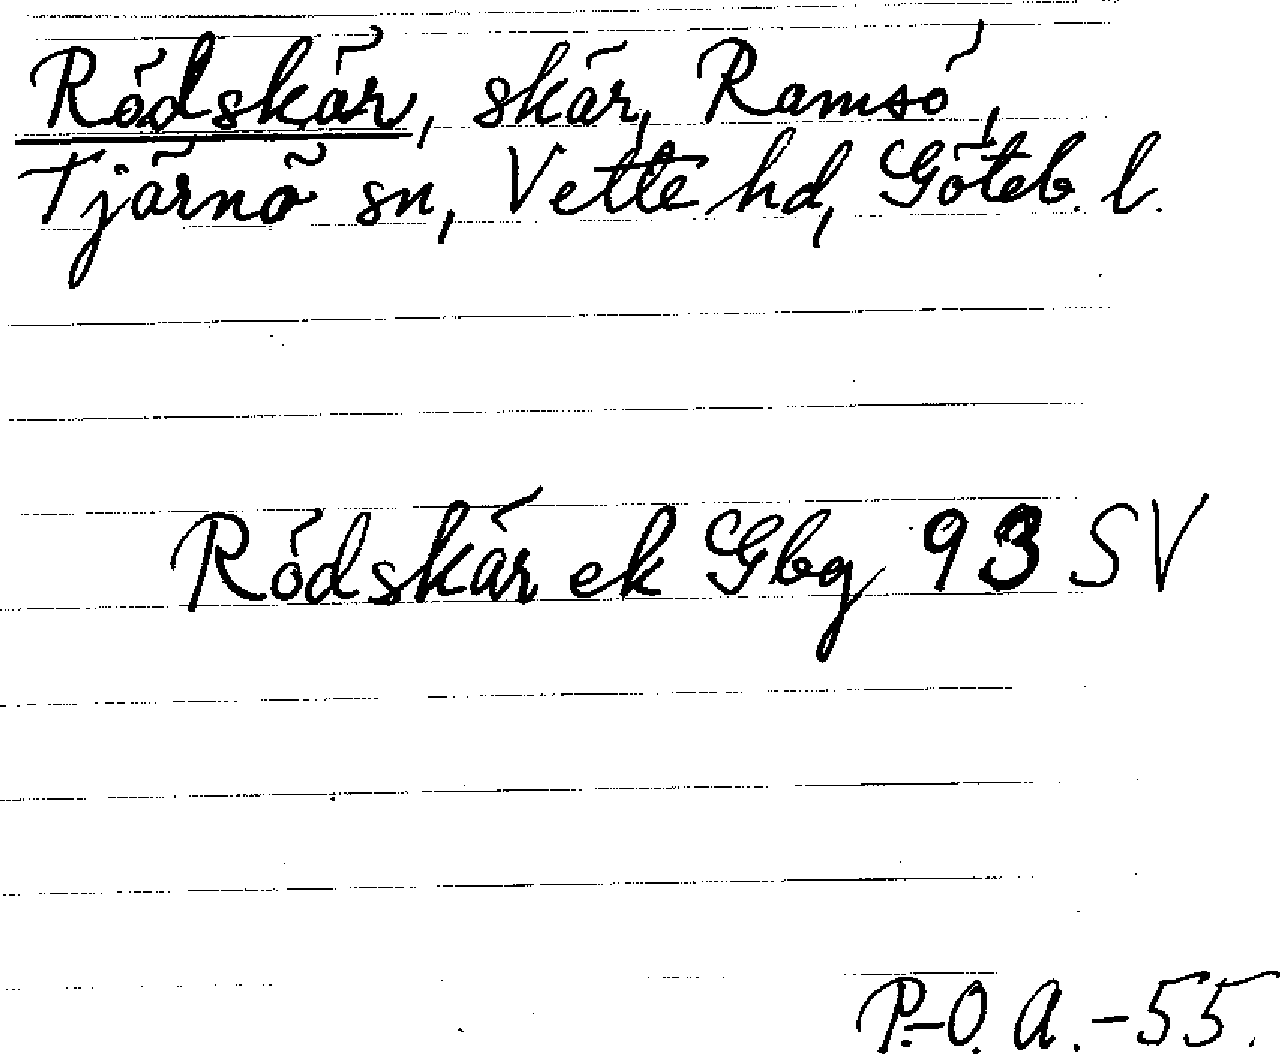 Rödskär, skär, Ramsö,
Tjärnö sn, Vette hd, Göteb. l.
Rödskär ek Gbg 93 SV
P.-O. A. -55.